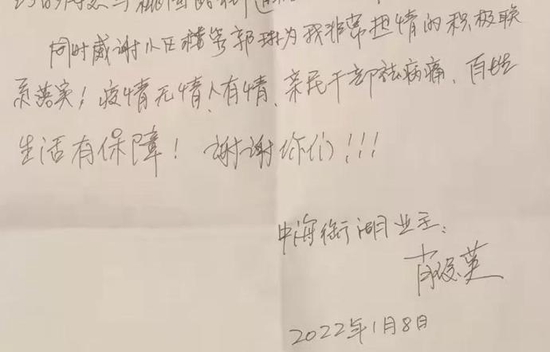 同时感谢小区楼管郭珠为我非常热情的积极联
系落实！疫情无情人有情、亲民干部祛病痛、百姓
生活有保障！谢谢你们！！！
中海衔湖业主：
肖
2022年1月8日